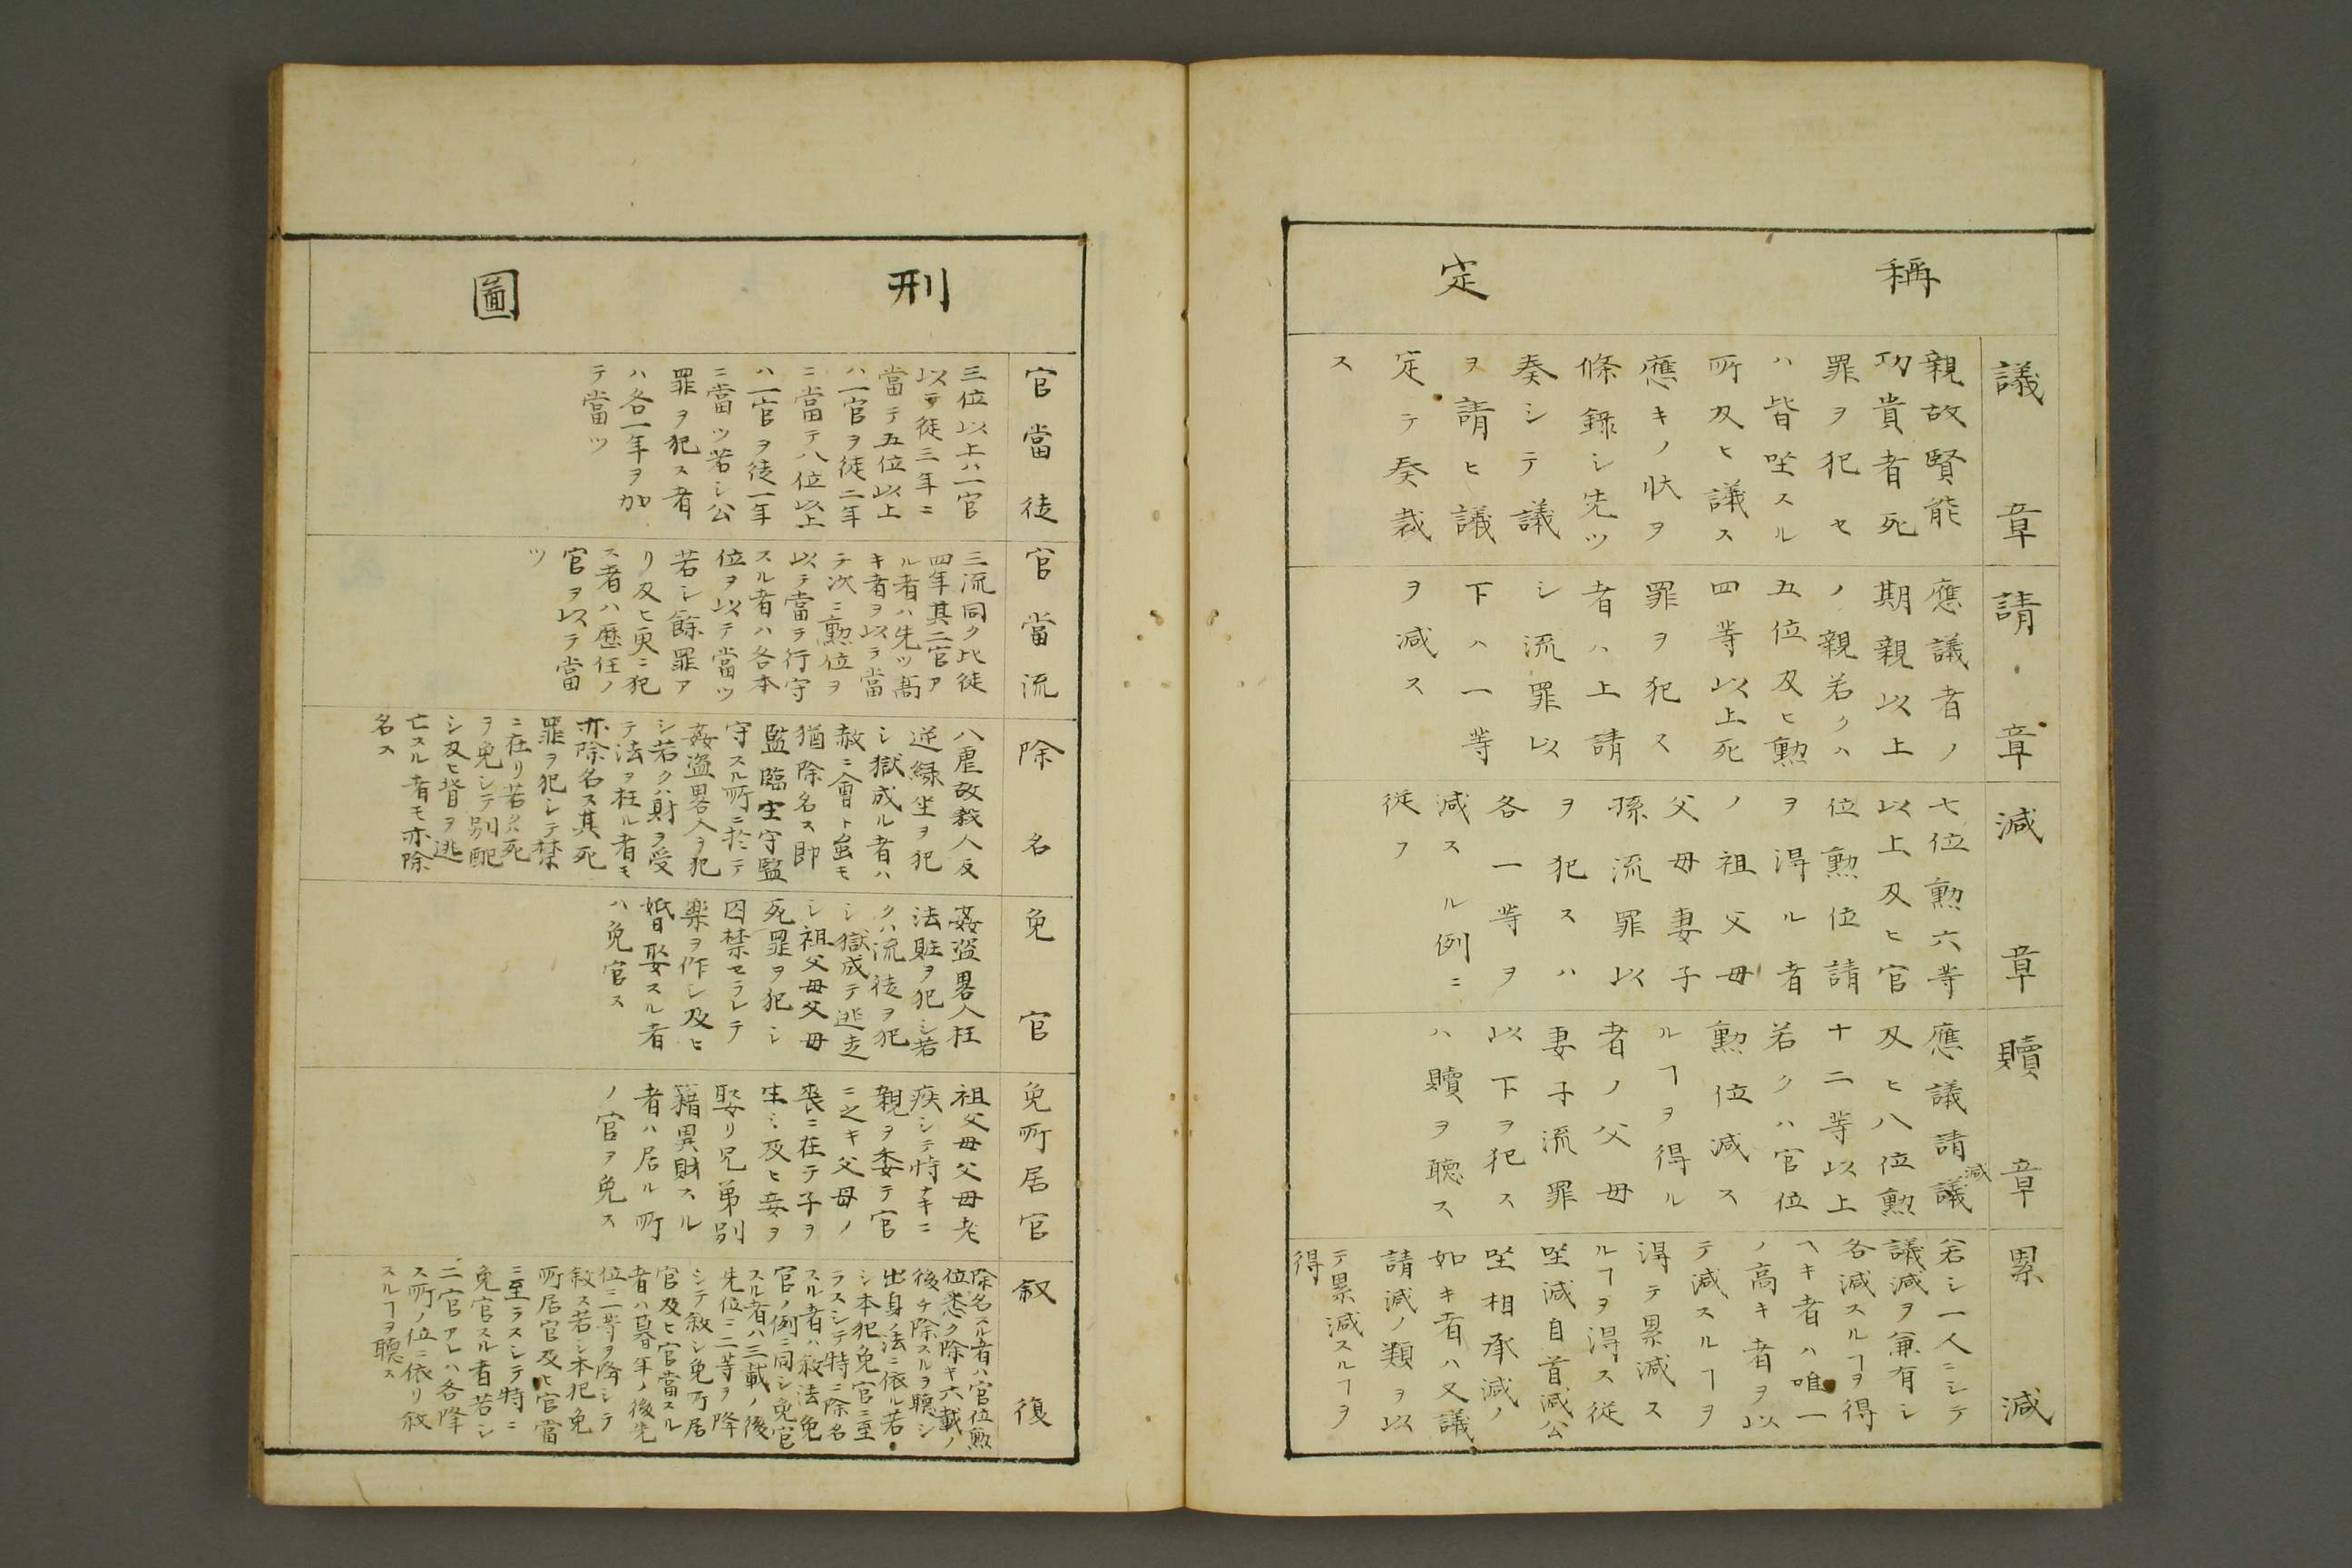 稱定
議章
親故賢能
功貴者死
罪ヲ犯セ
ハ皆坐スル
所及ヒ議ス
應キノ狀ヲ
條錄シ先ツ
奏シテ議
ヲ請ヒ議
定テ奏裁
ス
請章
應議者ノ
期親以上
ノ親若クハ
五位及ヒ勲
四等以上死
罪ヲ犯ス
者ハ上請
シ流罪以
下ハ一等
ヲ減ス
減章
七位勲六等
以上及ヒ官
位勲位請
ヲ得ル者
ノ祖父母
父母妻子
孫流罪以
ヲ犯スハ
各一等ヲ
減スル例ニ
従フ
贖章
應議請減議
及ヒ八位勲
十二等以上
若クハ官位
勲位減ス
ルヿヲ得ル
者ノ父母
妻子流罪
以下ヲ犯ス
ハ贖ヲ聴ス
累減
若シ一人ニシテ
議減ヲ兼有シ
各減スルヿヲ得
ヘキ者ハ唯一
ノ高キ者ヲ以
テ減スルヿヲ
得テ累減ス
ルヿヲ得ス従
坐減自首減公
坐相承減ノ
如キ者ハ又議
請減ノ類ヲ以
テ累減スルヿヲ
得
刑圖
官當徒
三位以上ハ一官
以テ徒三年ニ
當テ五位以上
ハ一官ヲ徒二年
ニ當テ八位以上
ハ一官ヲ徒一年
ニ當ツ若シ公
罪ヲ犯ス者
ハ各一年ヲ加
テ當ツ
官當流
三流同ク比徒
四年其二官ア
ル者ハ先ツ髙
キ者ヲ以テ當
テ次ニ勲位ヲ
以テ當テ行守
スル者ハ各本
位ヲ以テ當ツ
若シ餘罪ア
リ及ヒ更ニ犯
ス者ハ歴任ノ
官ヲ以テ當
ツ
除名
八虐故殺人反
逆縁坐ヲ犯
シ獄成ル者ハ
赦ニ會ト虽モ
猶除名ス即
監臨主守監
守スル所ニ於テ
姦盗畧人ヲ犯
シ若クハ財ヲ受
テ法ヲ枉ル者モ
亦除名ス其死
罪ヲ犯シテ禁
ニ在リ若クハ死
ヲ免シテ別配
シ及ヒ背ヲ逃
亡スル者モ亦除
名ス
免官
姦盗畧人枉
法賍ヲ犯シ若
クハ流徒ヲ犯
シ獄成テ逃走
シ祖父母父母
死罪ヲ犯シ
囚禁セラレテ
樂ヲ作シ及ヒ
婚娶スル者
ハ免官ス
免所居官
祖父母父母老
疾シテ侍ナキニ
親ヲ委テ官
ニ之キ父母ノ
喪ニ在テ子ヲ
生ミ及ヒ妾ヲ
娶リ兄弟別
籍異財スル
者ハ居ル所
ノ官ヲ免ス
叙復
除名スル者ハ官位勲
位悉ク除キ六載ノ
後チ除スルヲ聴シ
出身ノ法ニ依ル若
シ本犯免官ニ至
ラスシテ特ニ除名
スル者ハ叙法免
官ノ例ニ同シ免官
スル者ハ三載ノ後
先位ニ二等ヲ降
シテ敘シ免所居
官及ヒ官當スル
者ハ暮年ノ後先
位ニ一等ヲ降シテ
敘ス若シ本犯免
所居官及ヒ官當
ニ至ラスシテ特ニ
免官スル者若シ
二官アレハ各降
ス所ノ位ニ依リ敘
スルヿヲ聴ス